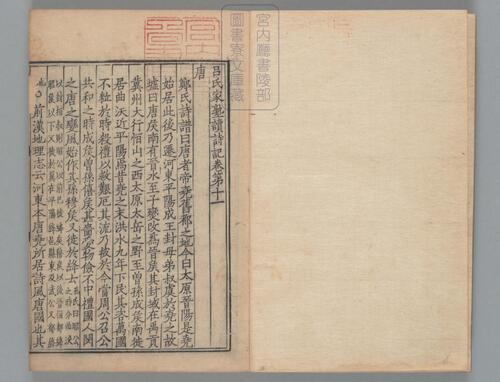 呂氏家塾讀詩記卷第十一
唐
鄭氏詩譜曰唐者帝堯舊都之地今曰太原晉陽是堯
始居此後乃遷河東平陽成王封母弟叔虞於堯之故
墟曰唐侯南有晉水至子燮改爲晉侯其封域在禹貢
冀州太行恒山之西太原太岳之野至曾孫成侯南徙
居曲沃近平陽焉昔堯之末洪水九年下民其咨萬國
不粒於時殺禮以救艱厄其流乃被於今當周公召公
共和之時成侯曾孫僖侯甚嗇愛物儉不中禮國人閔
之唐之變風始作其孫穆侯又徙於絳云
前漢地理志云河東本唐堯所居詩風唐國也其
宮内廳書陵部
圖書寮文庫藏